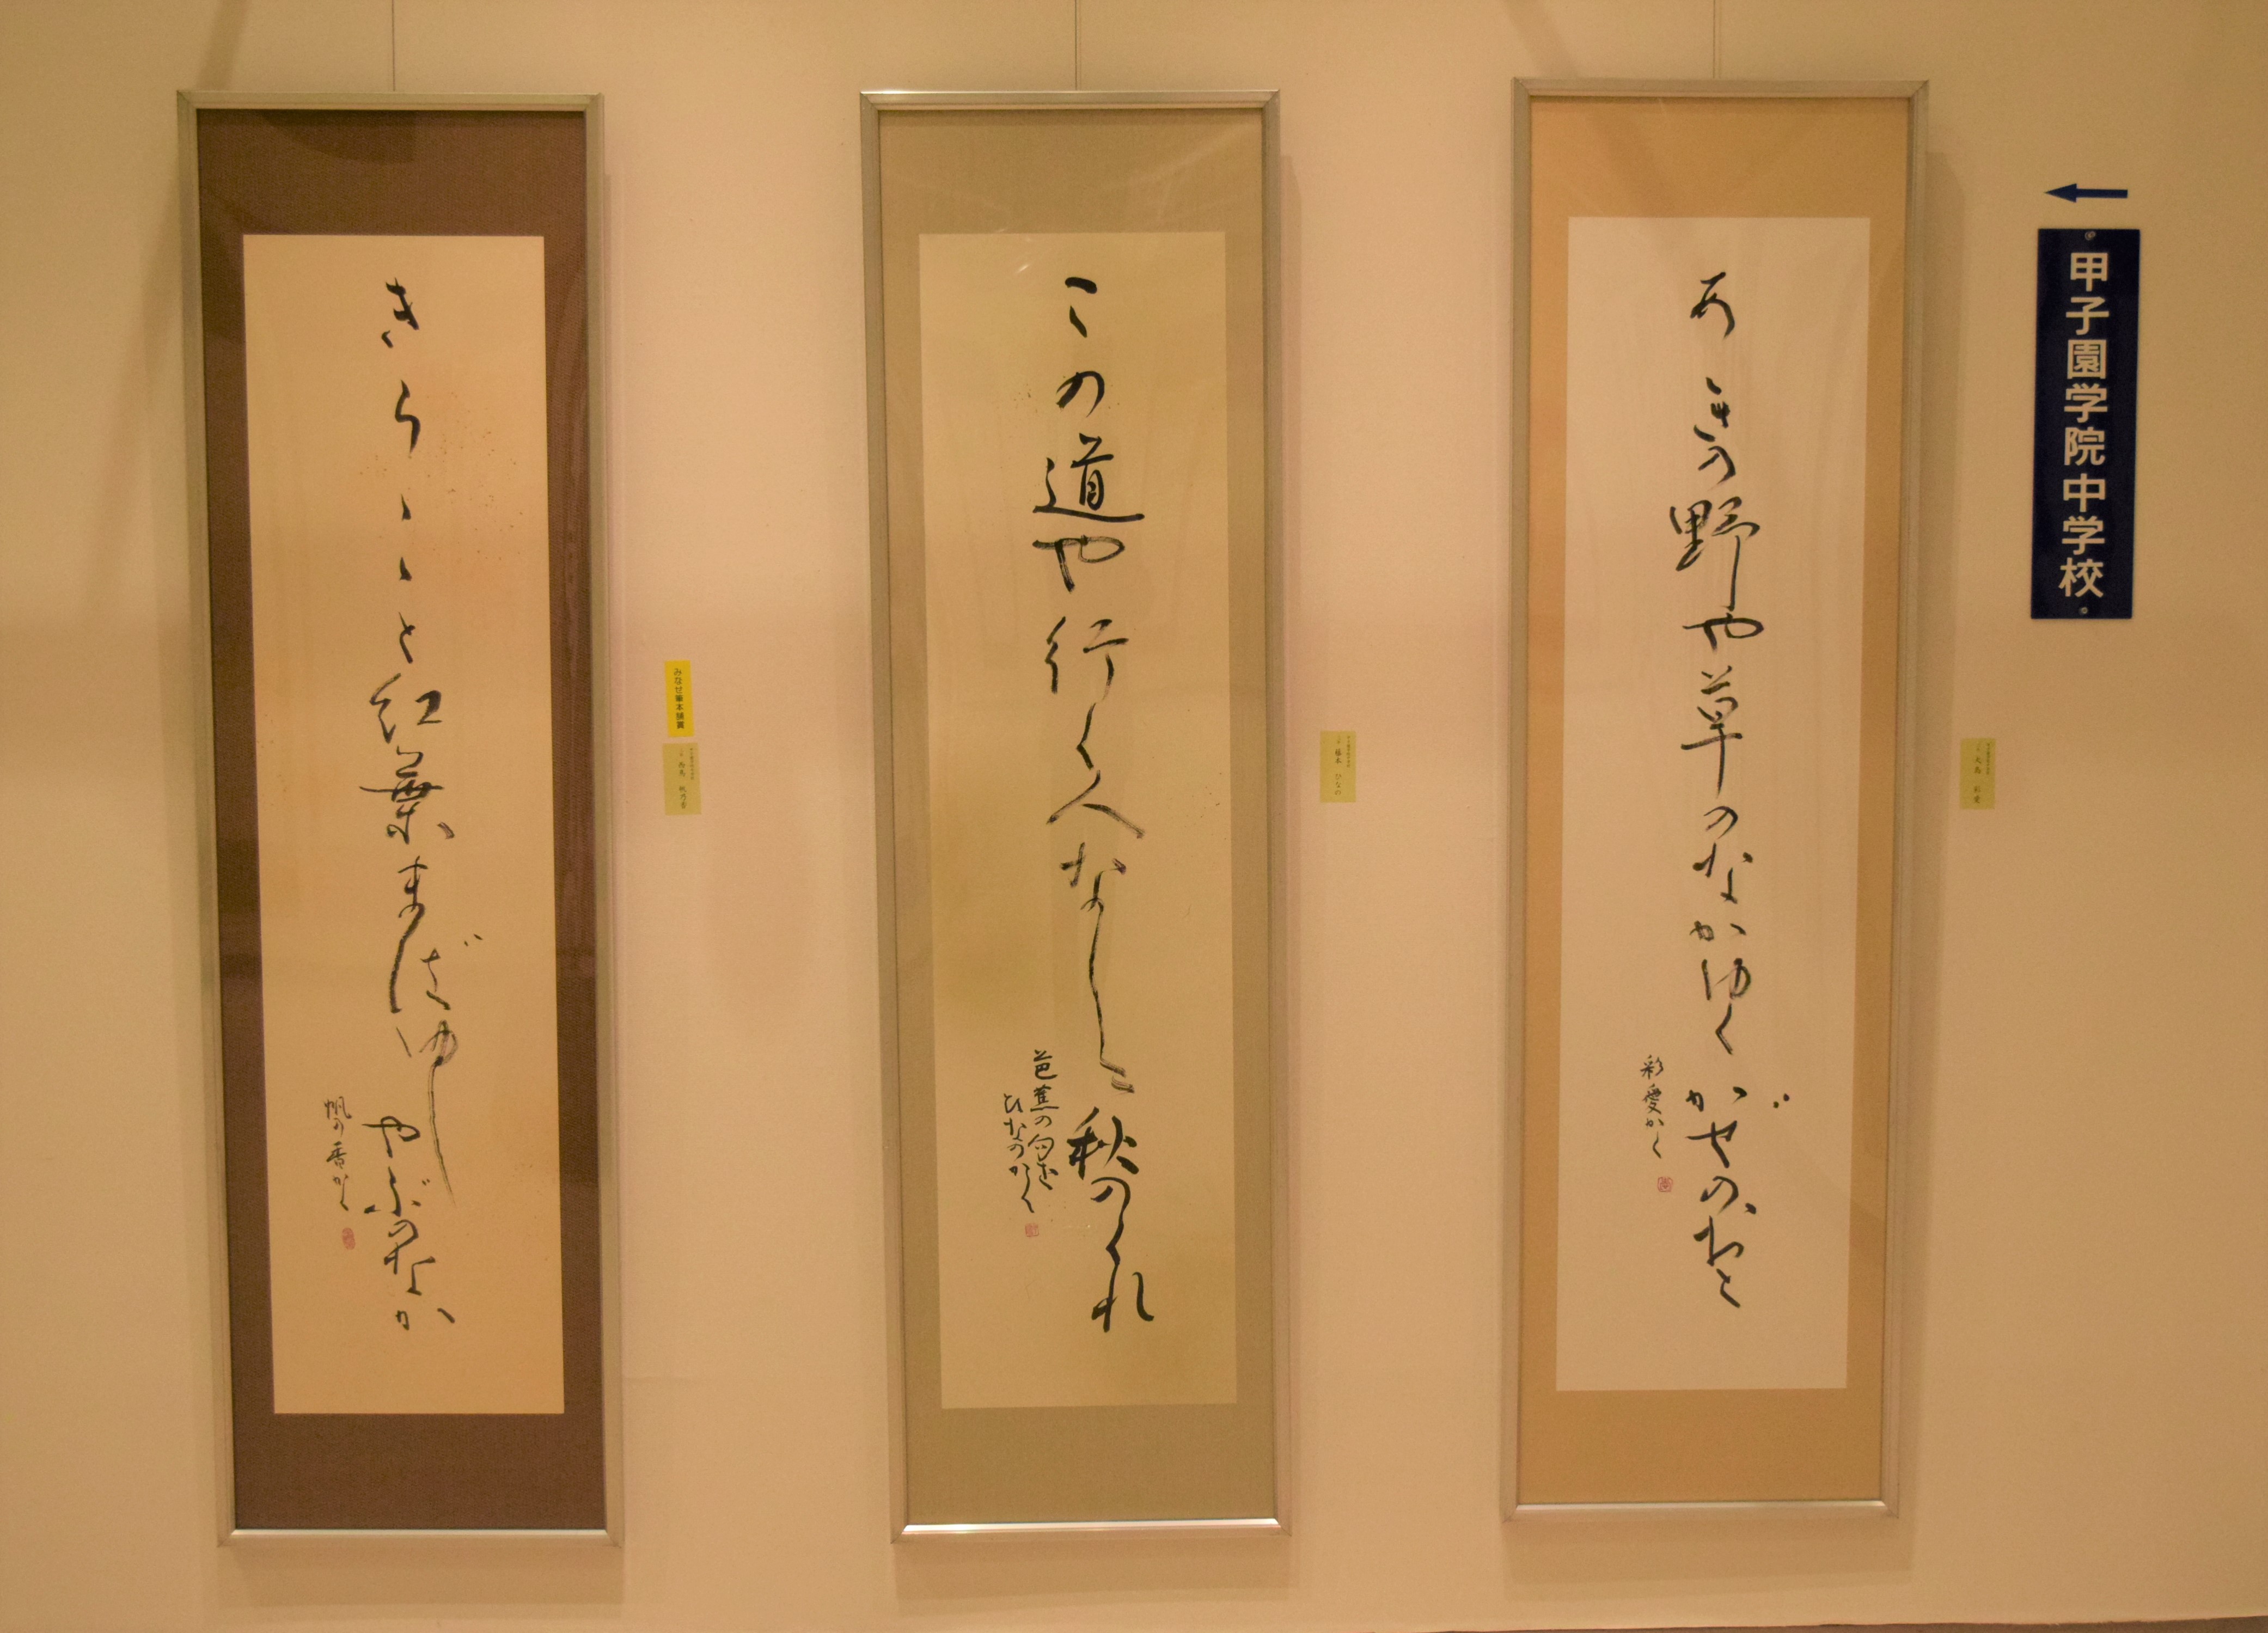 甲子園学院中学校
あきの野や草のなかゆくかぜのおと
彩愛かく
この道や行く人なしに秋のくれ
芭蕉の句を
ひなのかく
藤本 ひなの
きらゝゝと紅葉まばゆし
やぶのなか
帆の香かく
みなせ筆本舗賞